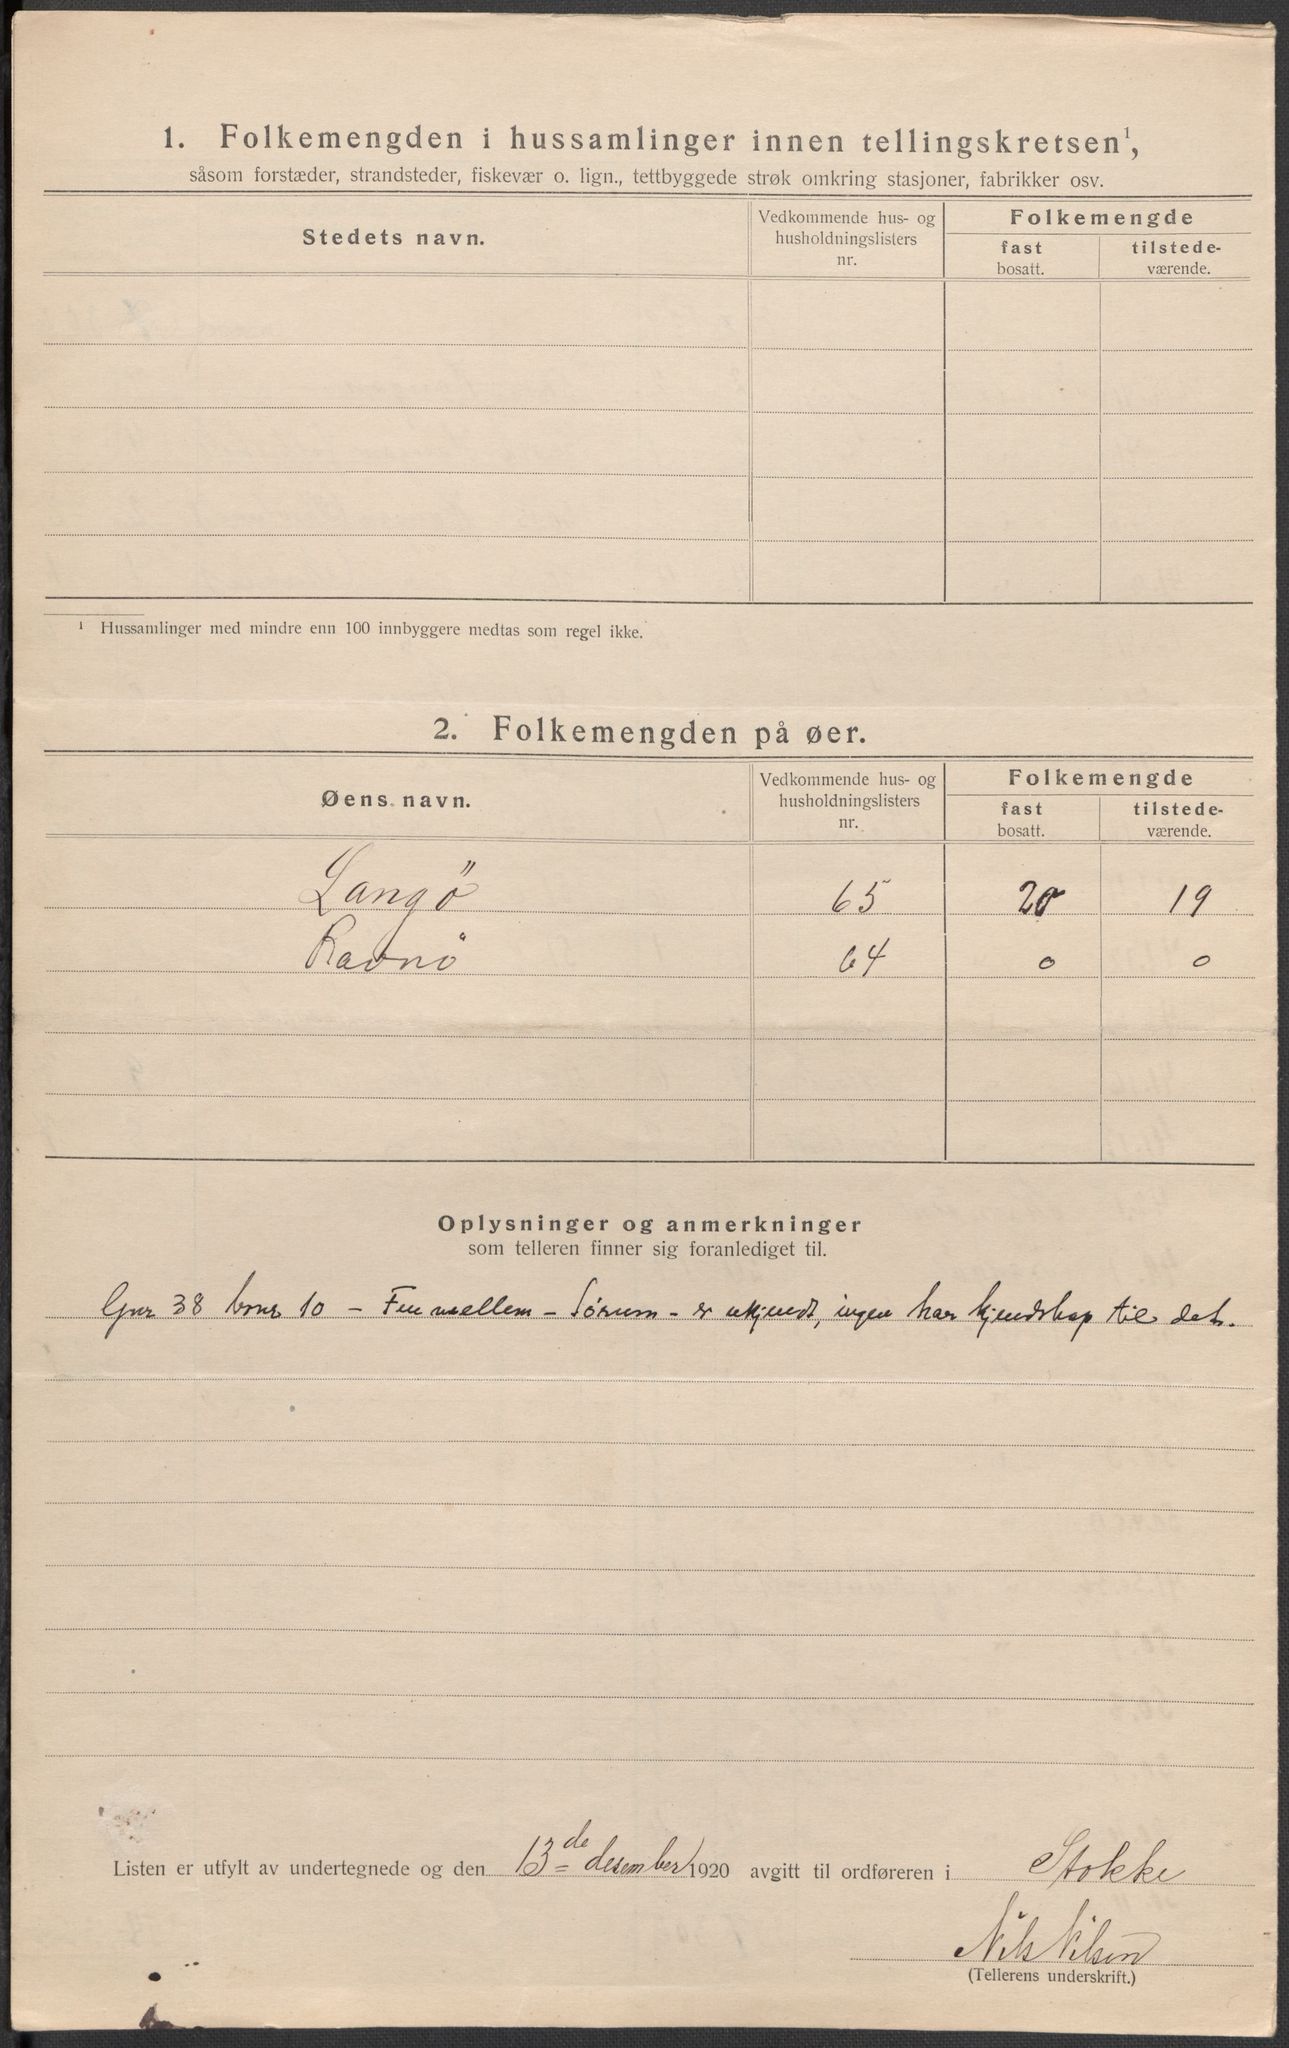 1. Folkemengden i hussamlinger innen tellingskretsen¹,
såsom forstæder, strandsteder, fiskevær o. lign., tettbyggede strøk omkring stasjoner, fabrikker osv.
Stedets navn.
Vedkommende hus- og husholdningslisters nr.
Folkemengde
fast bosatt.
tilstede-værende.
¹ Hussamlinger med mindre enn 100 innbyggere medtas som regel ikke.
2. Folkemengden på øer.
Øens navn.
Vedkommende hus- og husholdningslisters nr.
Folkemengde
fast bosatt.
tilstede-værende.
Langö 65 20 19
Ravnö 64 0 0
Oplysninger og anmerkninger
som telleren finner sig foranlediget til.
Gnr 38 bnr 10 - mellem - Sörum - er ukjendt, ingen har kjendskap til det.
Listen er utfylt av undertegnede og den 13de desember 1920 avgitt til ordføreren i Stokke
Nils Nilsen
(Tellerens underskrift.)